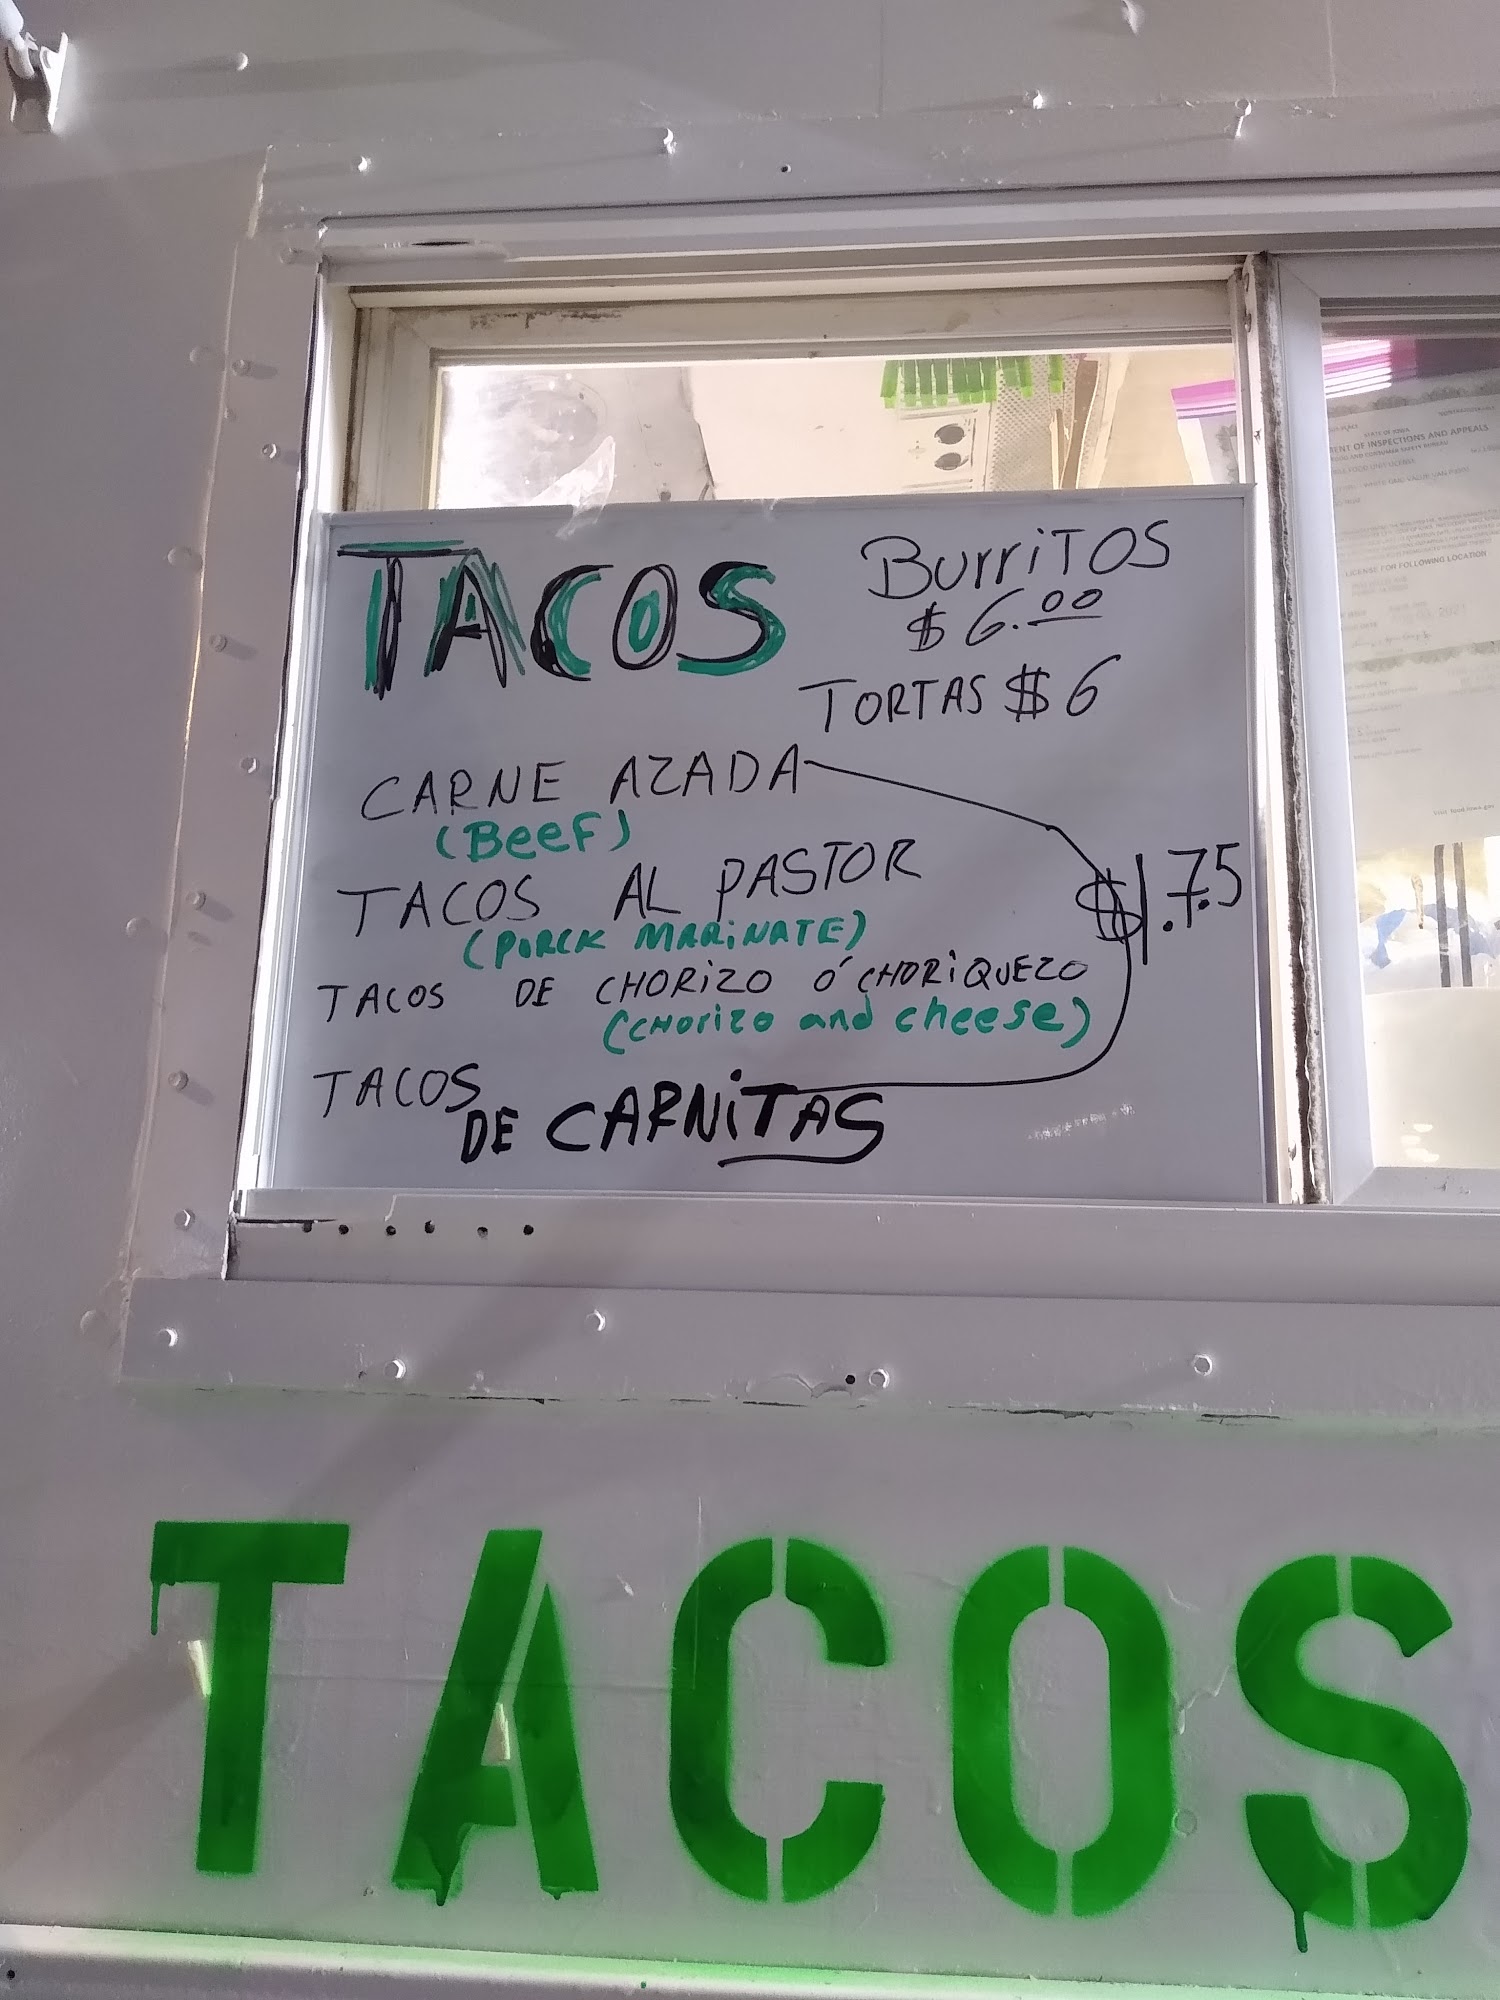 TACOS
BurriTOS
$6.00
TORTAS $6
CARNE AZADA
(BEEF)
TACOS AL PASTOR
$1.75
(PORCK MARINATE)
TACOS DE CHORIZO Ó CHORIQUEZO
(CHORIZO and cheese)
TACOS
DE CARNITAS
STATE OF IOWA
MENT OF INSPECTIONS AND APPEALS
LICENSE FOR FOLLOWING LOCATION
TACOS